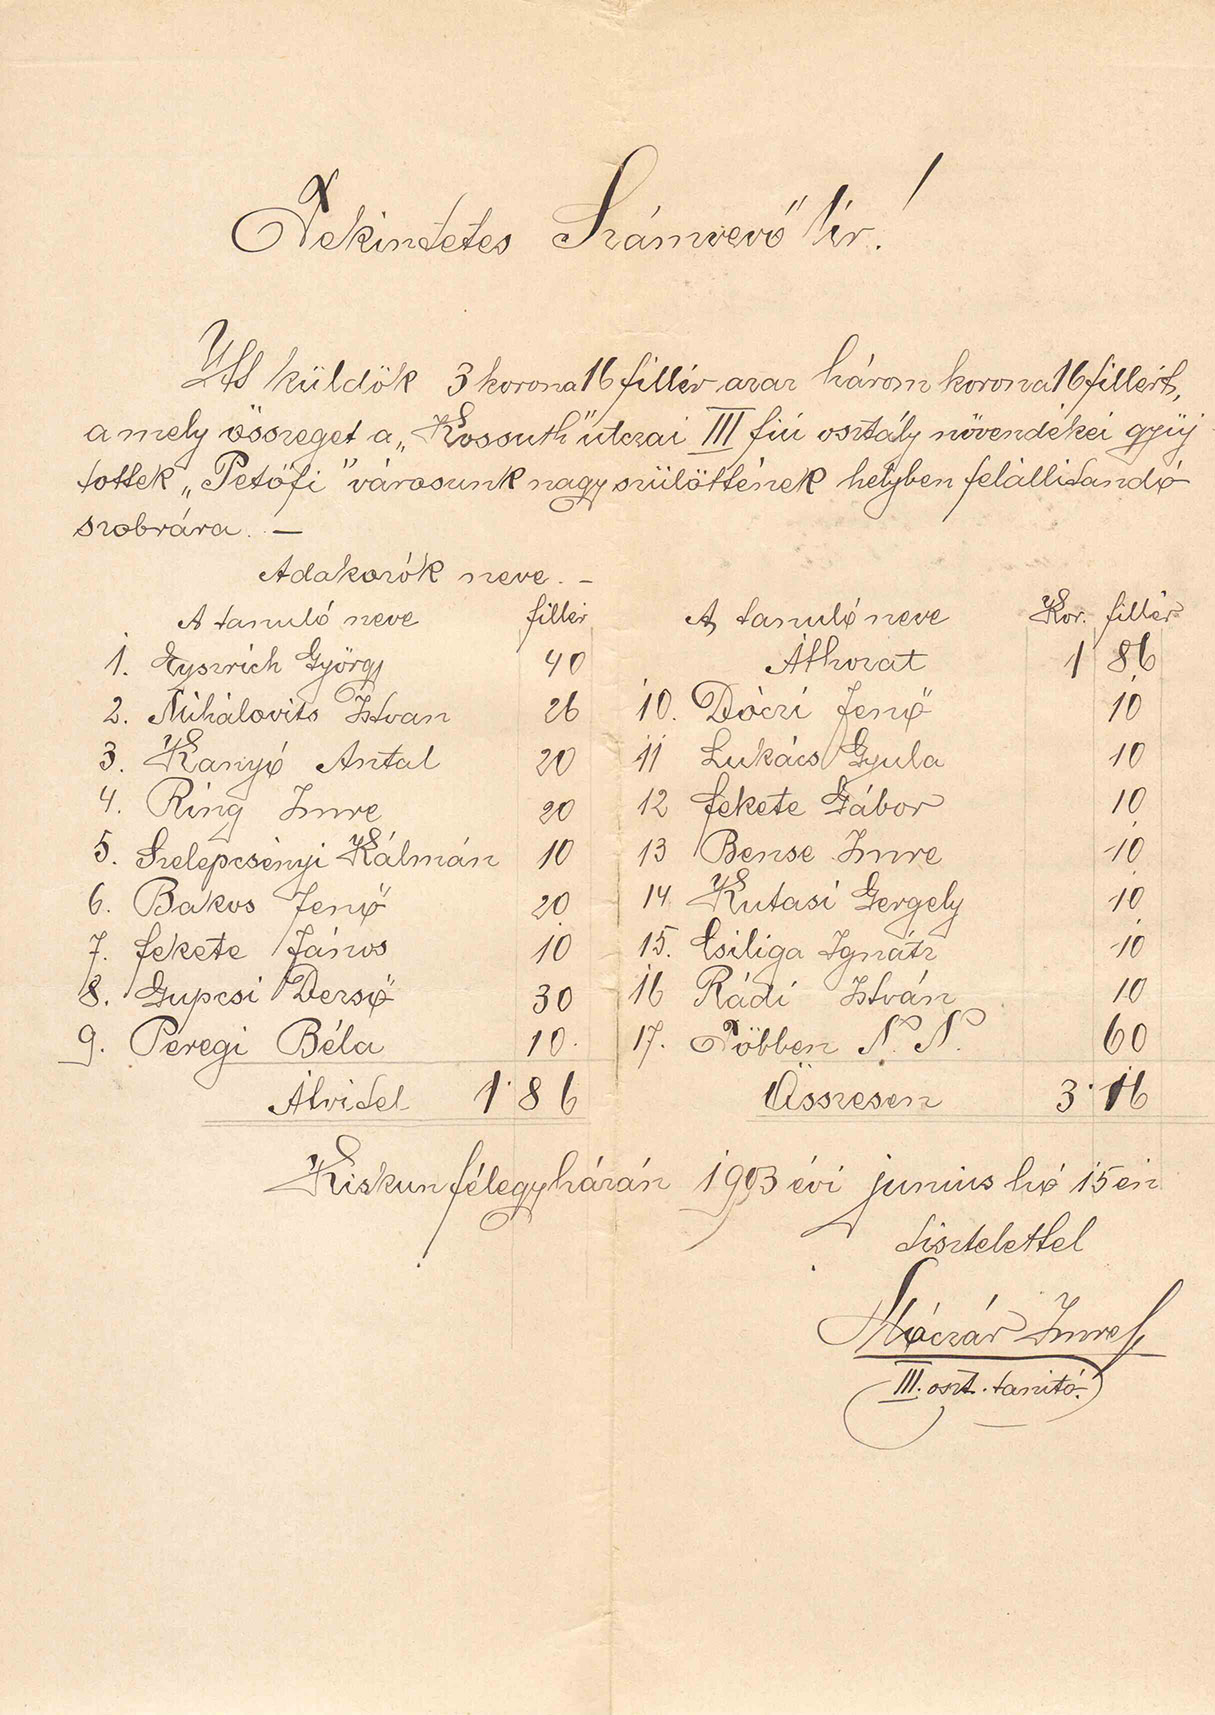 Tekintetes Számvevő Úr!
Itt küldök 3 korona 16 fillér azaz három korona 16 fillért,
a mely összeget a „Kossuth" útczai III fiú osztály növendékei gyüj
töttek „Petőfi" városunk nagy szülöttének helyben felállitandó
szobrára. —
Adakozók neve. —
A tanuló neve fillér
1. Eyszrich György 40
2. Mihálovits Istvan 26
3. Kanyó Antal 20
4. Ring Imre 20
5. Szelepcsényi Kálmán 10
6. Bakos Jenő 20
7. Fekete János 10
8. Gupcsi Dezső 30
9. Peregi Béla 10.
Átvitel 1 86
A tanuló neve Kor. fillér
Áthozat 1 86
10. Dóczi Jenő 10
11 Lukács Gyula 10
12 Fekete Gábor 10
13 Bense Imre 10
14 Kutasi Gergely 10
15. Csiliga Ignátz 10
16 Rádi István 10
17. Többen N. N. 60
Összesen 3 16
Kiskunfélegyházán 1903 évi junius hó 15 én
tisztelettel
Móczár Imre
III. oszt. tanitó.